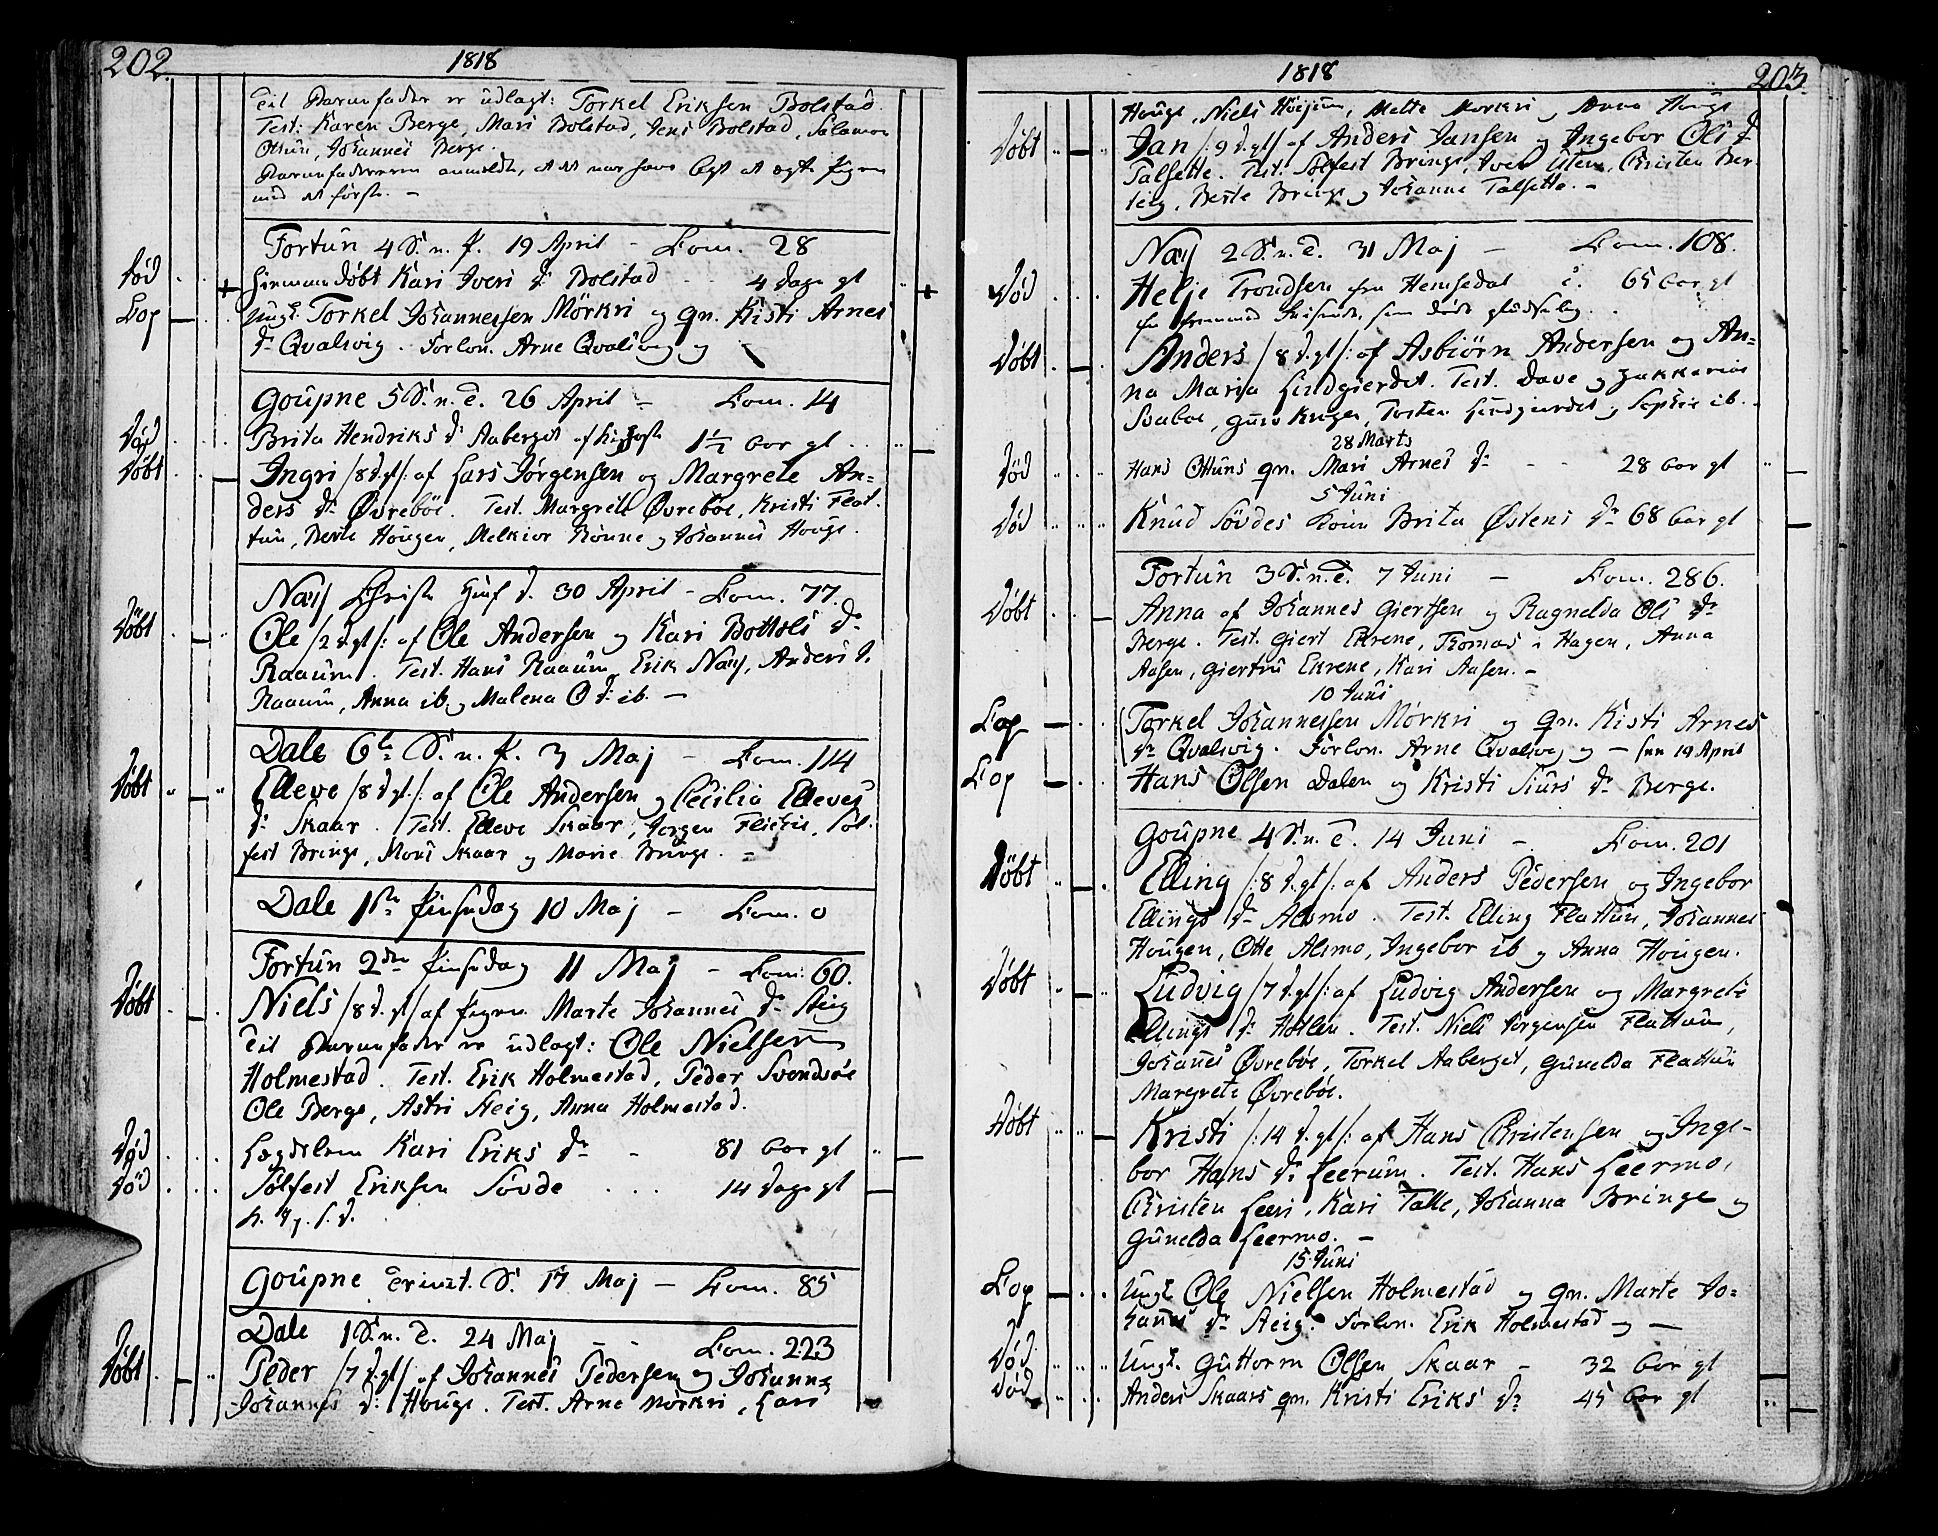 202.
1818
Til Barnefader er udlagt: Torkel Eriksen Bolstad.
Test: Karen Berge, Mari Bolstad, Jens Bolstad, Salamon
Ottun, Johannes Berge.
Barnefaderen anmeldte, at
med det første. -
Fortun 4 S. n. P. 19 April - Com. 28
Død hiemmedøbt Kari Iveri D: Bolstad 4 Dage gl
Cop Ungk. Torkel Johannessen Mörkri og qn. Kisti Arnes
Dr Qvalsvig. Forlov. Arne Qvalsvig og -
Goupne 5 S. n. P. 26 April - Com. 14
Død Brita Hendriks Dr Aaberget 1½ Aar gl
Døbt Ingri /8 D. gl/: af Lars Jörgensen og Margrete An=
ders Dr Øvreböe. Test. Margrete Øvreböe, Kristi Flat
tun, Berte Hougen, Melkior Rönne og Johannes Houge.
Næss Christi Himf. D. 30 April - Com. 77.
Döbt Ole /2 D. gl/: af Ole Andersen og Kari Bottols Dr
Raaum. Test. Hans Raaum, Erik Næss, Anders D.
Raaum, Anna ib. og Malena O D: ib. -
Dale 6te S. n. P. 3 Maj - Com. 114
Døbt Elleve /8 D. gl./: af Ole Andersen og Cecilia Elleves
Dr Skaar. Test. Elleve Skaar, Jørgen Flictie, Söl-
fest Bringe, Mons Skaar og Marie Bringe. -
Dale 1ste Pinsedag 10 Maj - Com. 0
Fortun 2den Pinsedag 11 Maj - Com: 60.
Døbt Niels /8 D. gl/ af Pigen Marte Johannes Dr Steig
Til Barnefader er udlagt: Ole Nielsen
Holmestad. Test. Erik Holmestad, Peder Svendsøe
Ole Berge, Astri Steig, Anna Holmestad.
Død Lægdslem Kari Eriks Dr - 81 Aar gl
Död Sølfest Eriksen Søvde 14 Dage gl
Goupne Trinit. S. 17 Maj - Com. 85
Dale 1 S. n. T. 24 Maj - Com. 223
Døbt Peder /7 D. gl/ af Johannes Pedersen og Johanna
Johannes D: Houge. Test. Arne Mörkri, Lars
1818
203.
Houge, Niels Høijum, Mette Mørkri og Anna Houge
Døbt Jan /:9 D. gl/ af Anders Jansen og Ingebor Ols Dr
Talsette. Test. Sølfest Bringe, Iver Uten, Christen Ber
teig, Berte Bringe og Johanne Talsette. -
Næss 2 S. n. T. 31 Maj - Com. 108.
Død Helje Trondsen fra Hemsedal 65 Aar gl
en fremmed
Døbt Anders /8 D. gl/: af Asbiörn Andersen og An=
na Maria Lindgierdet. Test. Dave og Zakkarias
Svaboe, Guro Kruger, Torsten Lindgierdet og Sophie ib.
28 Marts
Død Hans Ottuns qn. Mari Arnes Dr - - 28 Aar gl
5 Juni
Død Knud Søvdes Kone Brita Østens Dr 68 Aar gl
Fortun 3 S. n. T. 7 Juni - Com. 286.
Døbt Anna af Johannes Giertsen og Ragnelda Ols Dr
Berge. Test. Giert Ekrene, Thomas i Hagen, Anna
Aasen, Giertru Ekrene, Kari Aasen. -
10 Juni
Cop Torkel Johannessen Mørkri og qn. Kisti Arnes
Dr Qvalsvig. Forlov. Arne Qvalsvig og - see 19 April
Cop Hans Olsen Dalen og Kristi Siurs Dr Berge.
Goupne 4 S. n. T. 14 Juni - Com. 201
Döbt Elling /:8 D. gl/: af Anders Pedersen og Ingebor
Ellings Dr Alsmo. Test. Elling Flattun, Johannes
Hougen, Otte Alsmo, Ingebor ib og Anna Hougen.
Døbt Ludvig /7 D. gl/: af Ludvig Andersen og Margrete
Ellings Dr Hotlen. Test. Niels Jørgensen Flattun,
Johannes Øvrebøe, Torkel Aaberget, Gunelda Flattun
Margrete Øvrebøe.
Døbt Kristi /:14 D. gl/: af Hans Christensen og Inge-
bor Hans Dr Leerum. Test. Hans Leermo,
Christen Leeri, Kari Talle, Johanna Bringe og
Gunelda Leermo. -
15 Juni
Cop Ungk. Ole Nielsen Holmestad og qn. Marte Jo=
hannes Dr Steig. Forlov. Erik Holmestad og -
Død Ungk. Guttorm Olsen Skaar - 32 Aar gl
Død Anders Skaars qn. Kristi Eriks Dr 45 Aar gl